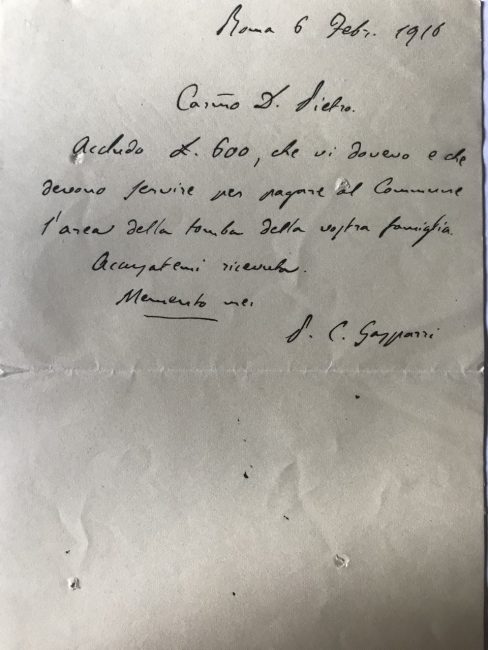 Roma 6 Febr. 1916
Carmo D. Pietro.
Accludo £. 600, che vi dovevo e che
devono servire per pagare al Commune
l'area della tomba della vostra famiglia.
Accusatemi ricevuta.
Memento mei
P. C. Gasparri